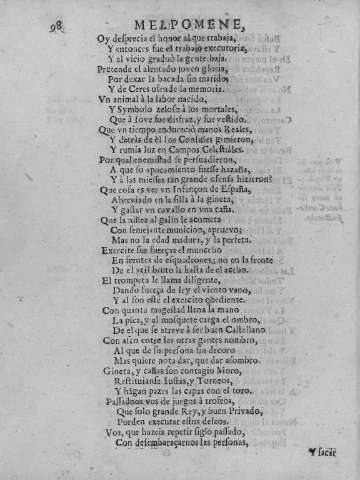 98 MELPOMENE,
Oy desprecia el honor al que trabaja,
Y entonces fue el trabajo executoria,
Y el vicio graduò la gente baja.
Pretende el alentado joven gloria,
Por dexar la bacada sin marido,
Y de Ceres ofende la memoria.
Vn animal à la labor nacido,
Y Symbolo zeloso à los mortales,
Que à Jove fue disfraz, y fue vestido.
Que vn tiempo endureciò manos Reales,
Y detràs de èl los Consules gimieron,
Y rumia luz en Campos Celestiales.
Por qual enemistad se persuadieron,
A que su apocamiento fuesse hazaña,
Y à las miesses tan grande ofensa hizieron?
Que cosa es ver vn Infançon de España,
Abreviado en la silla à la gineta,
Y gastar vn cavallo en vna caña.
Que la niñez al gallo le acometa
Con semejante municion, apruevo;
Mas no la edad madura, y la perfeta.
Exercite sus fuerças el mancebo
En frentes de esquadrones; no en la frente
De el vtil bruto la hasta de el acebo.
El trompeta le llama diligente,
Dando fuerça de ley el viento vano,
Y al son estè el exercito obediente.
Con quanta magestad llena la mano
La pica, y el mosquete carga el ombro,
De el que se atreve à ser buen Castellano
Con asco entre las otras gentes nombro,
Al que de su persona sin decoro
Mas quiere nota dar, que dar assombro.
Gineta, y cañas son contagio Moro,
Restituianse Iustas, y Torneos,
Y hagan pazes las capas con el toro.
Passadnos vos de juegos à trofeos,
Que solo grande Rey, y buen Privado,
Pueden executar estos deseos.
Vos, que hazeis repetir siglo passado,
Con desembaraçarnos las personas,
Y sacar